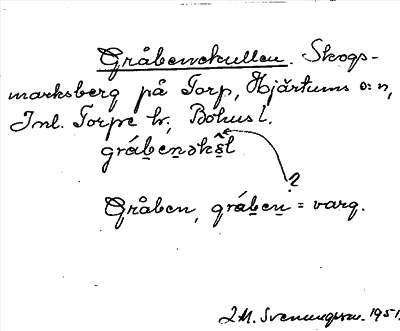 Gråbenskullen. Skogs-
marksberg på Torp, Hjärtums s:n,
Inl. Torpe hr, Bohusl.
gråbenəks̭l
?
Gråben, gråben = varg.
J.M. Svenungsson. 1951.